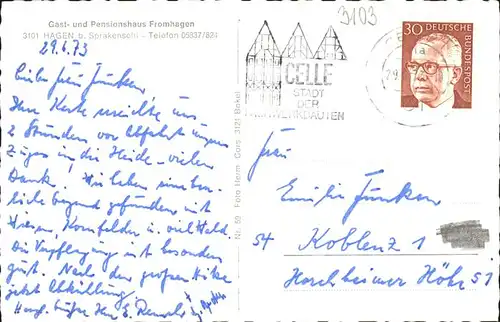 Gast- und Pensionshaus Fromhagen
3101 HAGEN b. Sprakensehl - Telefon 05837/824
29.6.73
Liebe Frau Junker,
Ihre Karte erreichte uns
2 Stunden vor Abfahrt unseres
Zuges in die Heide - vielen
Dank! Wir haben eine
liebe Gegend gefunden mit
Wiesen, Kornfelder u. viel Wald
Die Verpflegung ist besonders
gut. Nach der großen Hitze
jetzt Abkühlung!
Herzl. Grüße Ihre E.
Nr. 59 Foto Horm. Cors 3101 Eickel
3103
CELLE
STADT
DER
FACHWERKBAUTEN
29.
30
DEUTSCHE
BUNDESPOST
Frau
Emilie Junker
54 Koblenz 1
Horchheimer Höhe 51